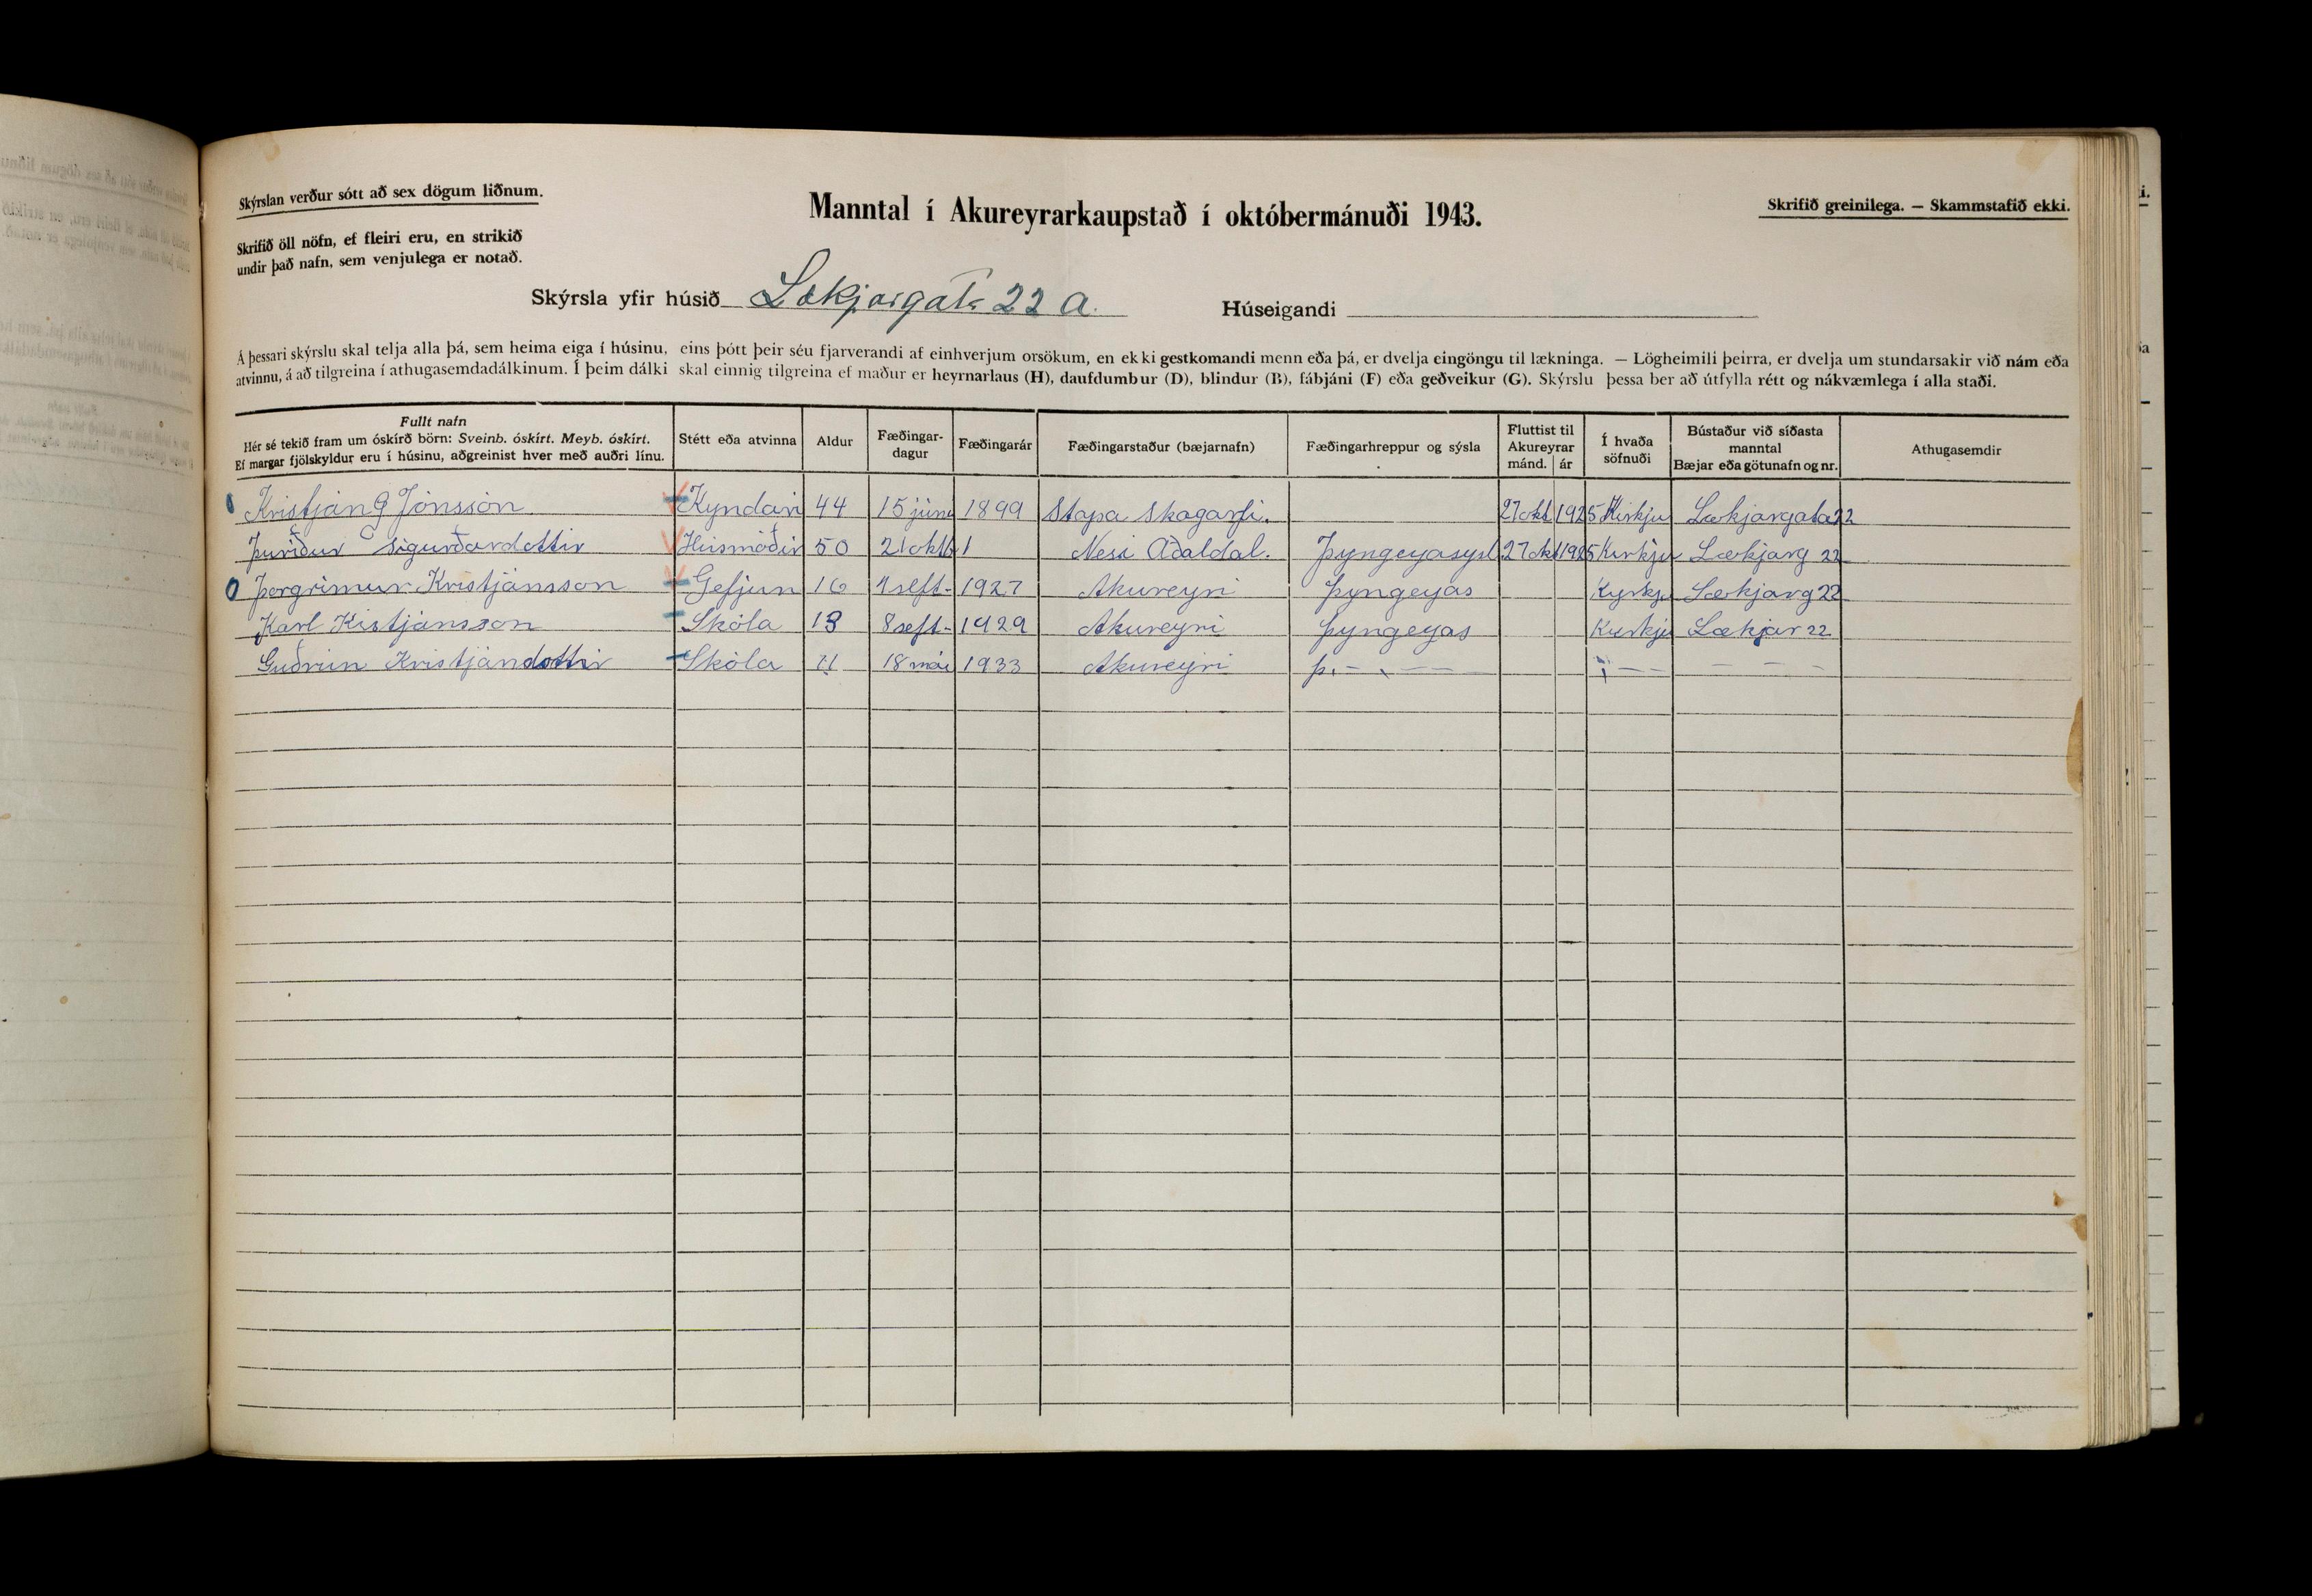 Skýrslan verður sótt að sex dögum liðnum.
Skrifið öll nöfn, ef fleiri eru, en strikið
undir það nafn, sem venjulega er notað.
Manntal í Akureyrarkaupstað í októbermánuði 1943.
Skrifið greinilega. — Skammstafið ekki.
Skýrsla yfir húsið Lækjargata 22 a. Húseigandi
Á þessari skýrslu skal telja alla þá, sem heima eiga í húsinu, eins þótt þeir séu fjarverandi af einhverjum orsökum, en ekki gestkomandi menn eða þá, er dvelja eingöngu til lækninga. — Lögheimili þeirra, er dvelja um stundarsakir við nám eða
atvinnu, á að tilgreina í athugasemdadálkinum. Í þeim dálki skal einnig tilgreina ef maður er heyrnarlaus (H), daufdumbur (D), blindur (B), fábjáni (F) eða geðveikur (G). Skýrslu þessa ber að útfylla rétt og nákvæmlega í alla staði.
Fullt nafn
Hér sé tekið fram um óskírð börn: Sveinb. óskírt. Meyb. óskírt.
Ef margar fjölskyldur eru í húsinu, aðgreinist hver með auðri línu.
Stétt eða atvinna
Aldur
Fæðingar-
dagur
Fæðingarár
Fæðingarstaður (bæjarnafn)
Fæðingarhreppur og sýsla
Fluttist til
Akureyrar
mánd. ár
Í hvaða
söfnuði
Bústaður við síðasta
manntal
Bæjar eða götunafn og nr.
Athugasemdir
Kristján G Jónsson Kyndari 44 15 júní 1899 Stapa Skagarfi. 27 okt 1925 Kirkju Lækjargata 22
Þuríður Sigurðardottir Húsmóðir 50 21 okt 1 Nesi Aðaldal. Þyngeyasysl 27 okt 1925 Kirkju Lækjarg 22
Þorgrímur Kristjánsson Gefjun 16 1 seft- 1927 Akureyri Þyngeyas Kyrkju Lækjarg 22
Karl Kistjánsson Skóla 13 8 seft- 1929 Akureyri Þyngeyas Kyrkju Lækjar 22
Guðrún Kristjándottir Skóla 11 18 mai 1933 Akureyri Þ. — — — — — — —